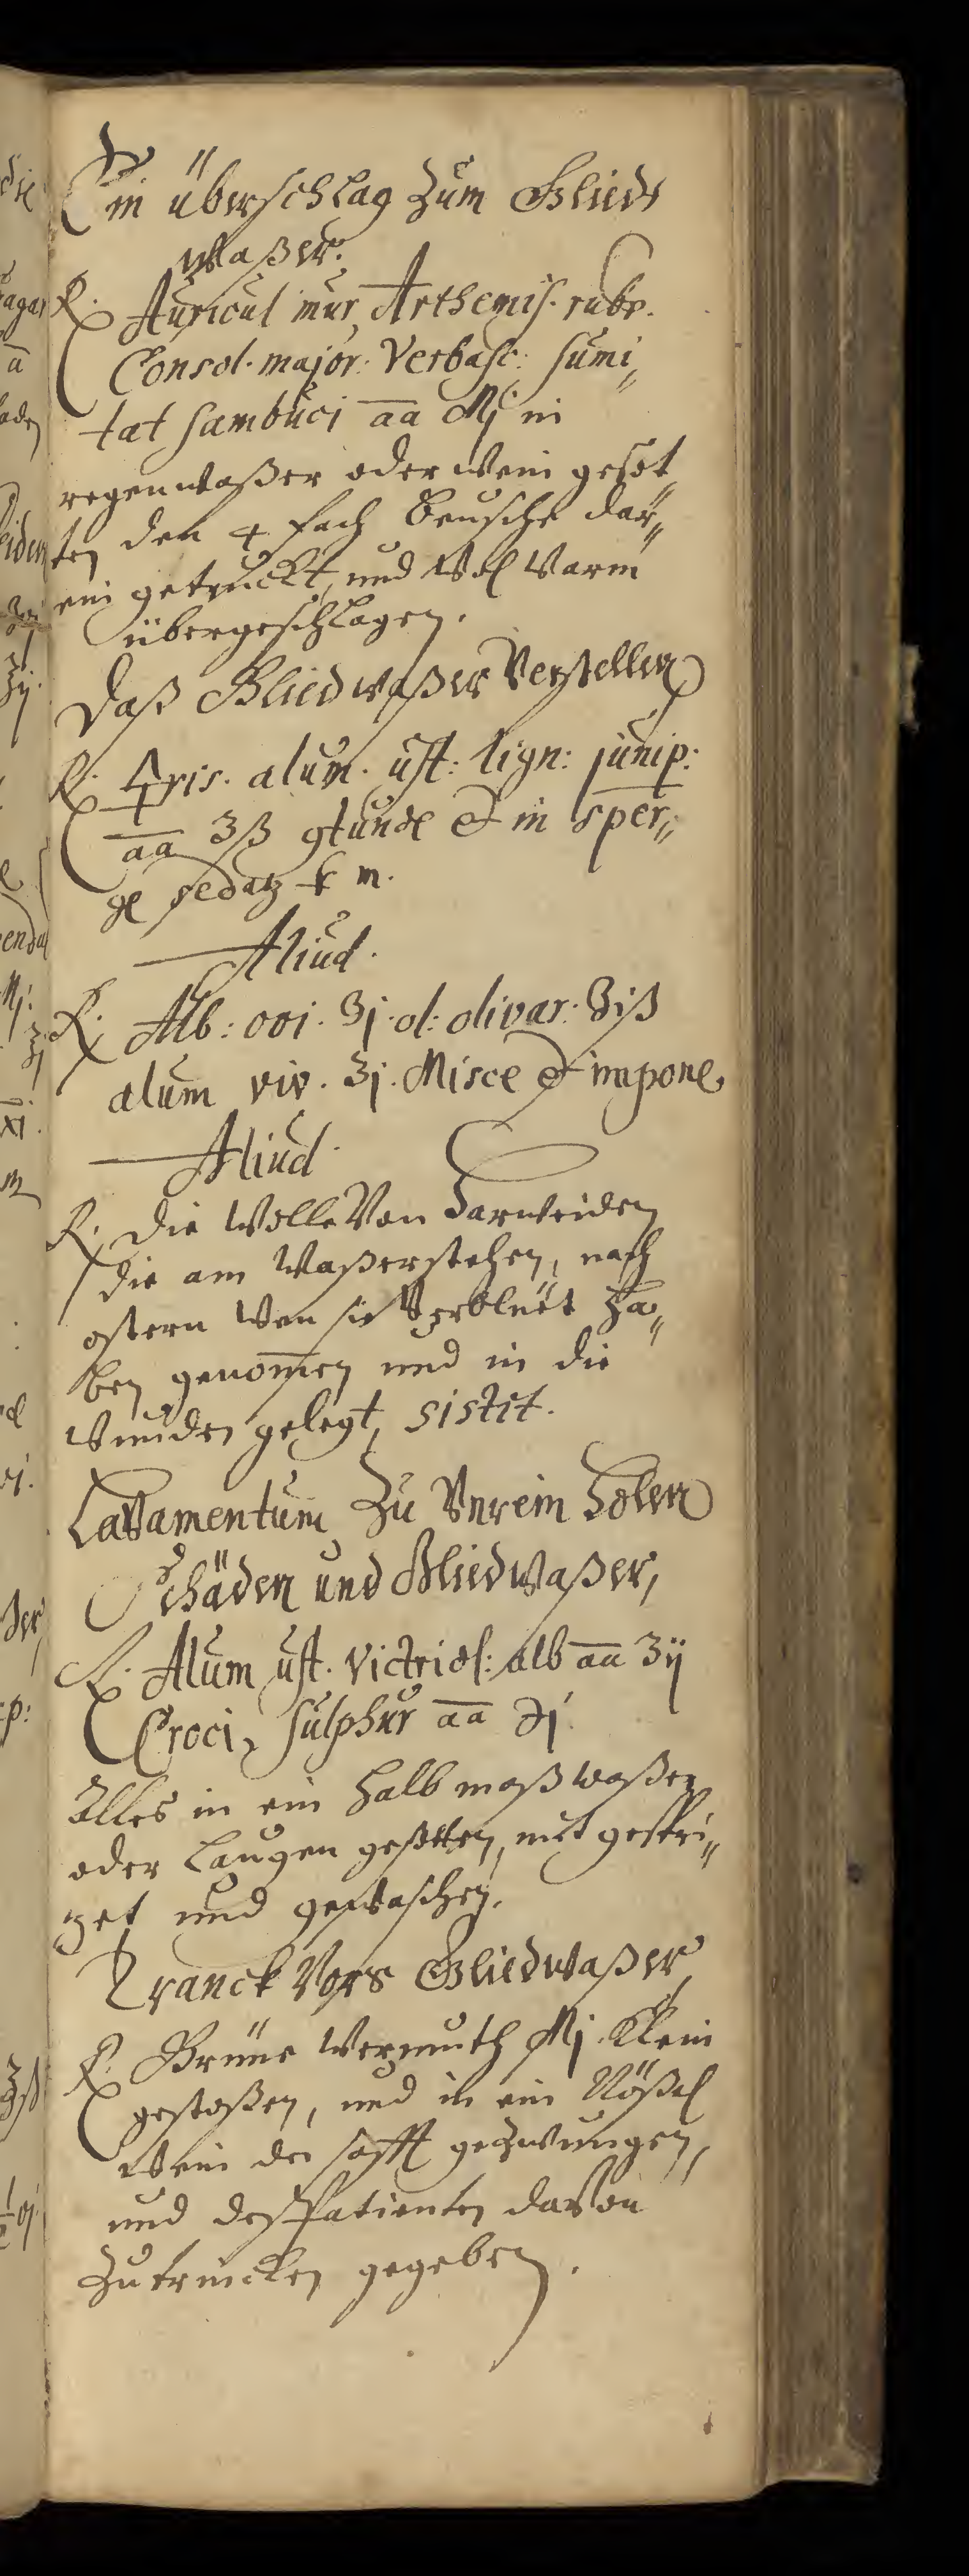 Ein überschlag zum Glied
waßer.
R. Auricul mur, Arthemis. rubr.
Consol. major: Verbasc: sumi„
tat sambuci aa Mj in
regenwaßer oder wein gesot„
ten den 4 fach beusche dar„
ein getruckt, und wol warm
übergeschlagen.
Daß Gliedwaßer Verstellen
R. 🜍ris. alum. ust: lign: junip:
aa ʒß in sper„
ge m.
Aliud.
R. Alb: ovi. ʒj. ol: olivar: ʒiß
alum viv. ʒj. Misce et impone
Aliud.
R. die Wolle Von Harweiden
die am Waßer stehen, nach
ostern Wen sie Verblüet ha„
ben genomen und in die
wunden gelegt, sistit.
Lavamentum Zu Unrein Holen
Schäden und Gliedwaßer,
R. Alum ust. Victriol: alb aa ʒij
Croci, sulphur aa ℈j.
Alles in ein halb maß waßer
oder Laugen gesotten, mit gespri„
zet und gewaschen.
Tranck Vors Gliedwaßer,
R. Grüne Wermuth Mj. Klein
gestoßen, und in ein Nößel
Wein der safft gezwungen,
und des Patienten davon
Zutrincken gegeben.